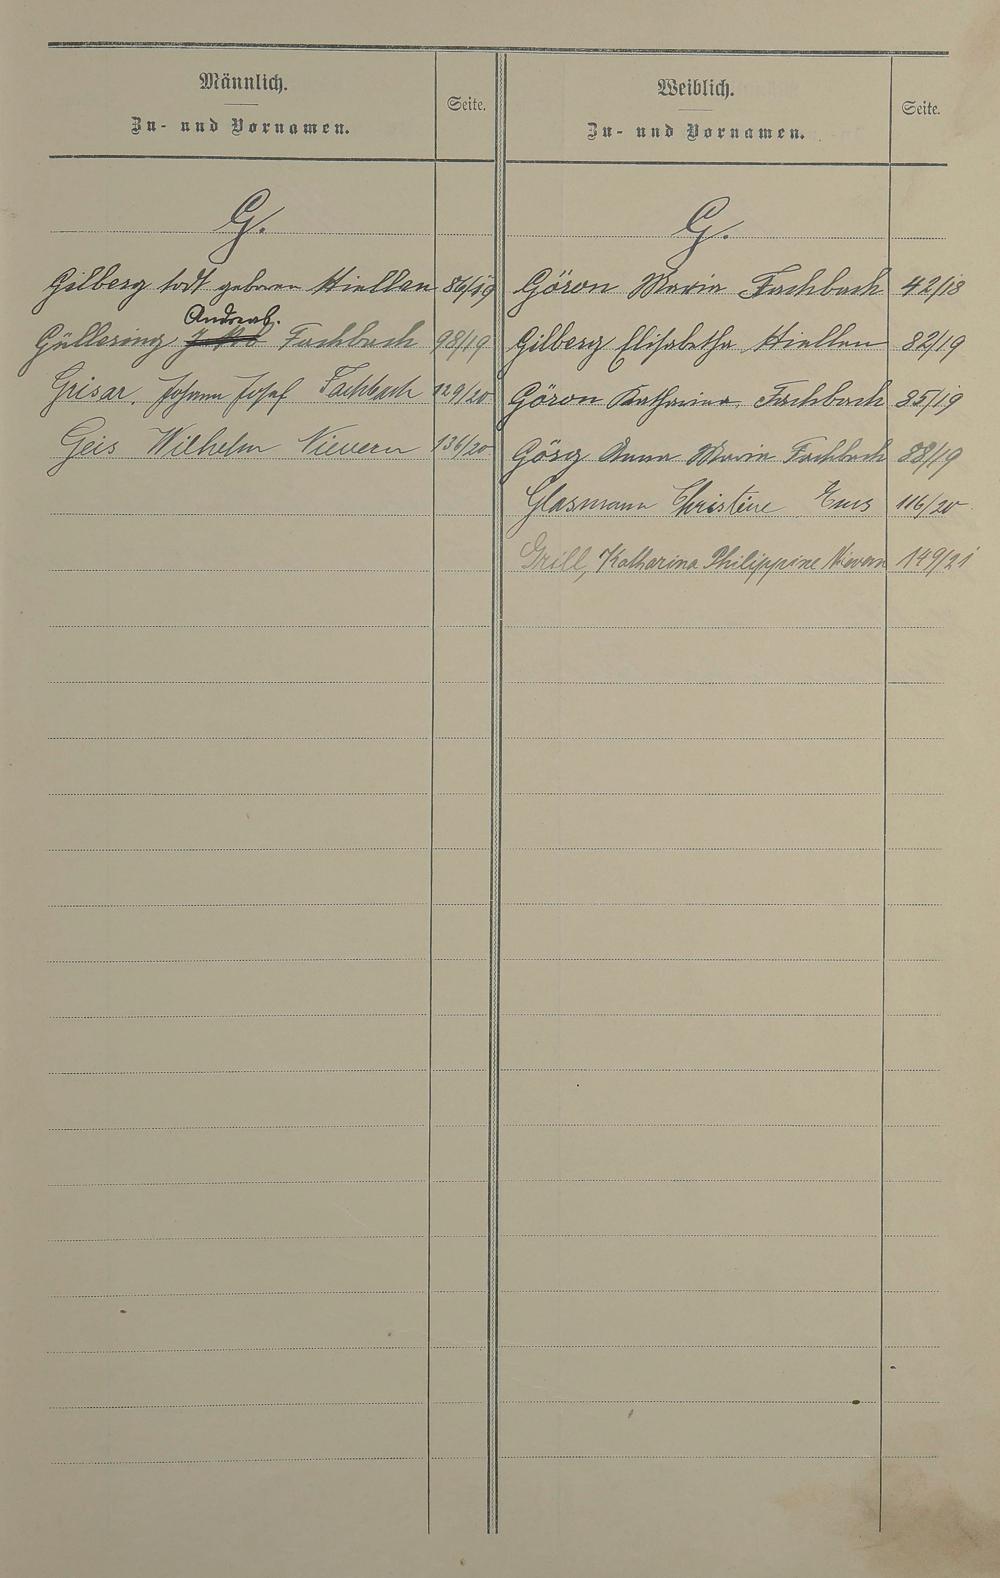 Männlich.
Zu- und Vornamen.
Seite.
G.
Gilberg todt geboren Miellen 86/19
Andreas.
Güllering Fachbach 98/19
Grisar, Johann Josef Fachbach 129/20
Geis Wilhelm Nievern 136/20
Weiblich.
Zu- und Vornamen.
Seite.
G.
Göron Maria Fachbach 42/18
Gilberg Elisabetha Miellen 82/19
Göron Katharina, Fachbach 85/19
Görg Anna Maria Fachbach 88/19
Glasmann Christine Ems 116/20
Grill, Katharina Philippine Nievern 149/21